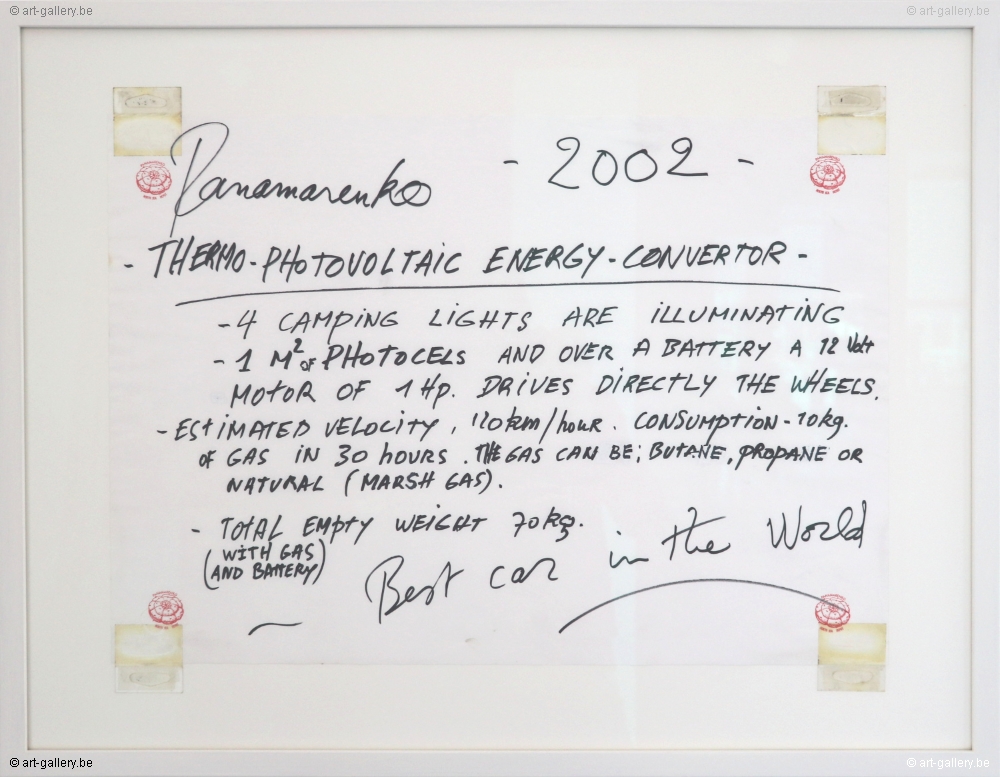 © art-gallery.be © art-gallery.be
Panamarenko - 2002 -
- THERMO-PHOTOVOLTAIC ENERGY-CONVERTOR -
- 4 CAMPING LIGHTS ARE ILLUMINATING
- 1 M² OF PHOTOCELS AND OVER A BATTERY A 12 Volt
MOTOR OF 1 Hp. DRIVES DIRECTLY THE WHEELS.
- ESTIMATED VELOCITY, 120km/HOUR. CONSUMPTION - 10kg.
OF GAS IN 30 HOURS. THE GAS CAN BE; BUTANE, PROPANE OR
NATURAL (MARSH GAS).
- TOTAL EMPTY WEIGHT 70kg.
(WITH GAS
AND BATTERY)
Best car in the World
© art-gallery.be © art-gallery.be